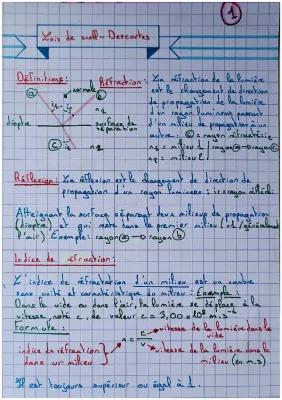 1
Lois de snell-Descartes
Définitions: Réfraction: La réfraction de la lumière
normale est le changement de direction
a b de propagation de la lumière
i1 n1 d'un rayon lumineux passant
dioptre surface de séparation d'un milieu de propagation à un
autre: c = rayon réfracté
c i2 n2 n1 = milieu 1 / rayon a → rayon c
n2 = milieu 2
Réflexion: La réflexion est le changement de direction de
propagation d'un rayon lumineux:
Atteignant la surface séparant deux milieux de propagation
(dioptre) et qui reste dans le premier milieu (n1/généralement
l'air) Exemple: rayon a → rayon b
Indice de réfraction:
L'indice de réfractation d'un milieu est un nombre
sans unité et caractéristique du milieu: Exemple:
Dans le vide ou dans l'air, la lumière se déplace à la
vitesse, notée c, de valeur c = 3,00 x 10⁸ m.s⁻¹
Formule:
vitesse de la lumière dans le vide
indice de réfraction dans un milieu n = c/v
vitesse de la lumière dans le milieu (en m.s)
Il est toujours supérieur ou égal à 1.